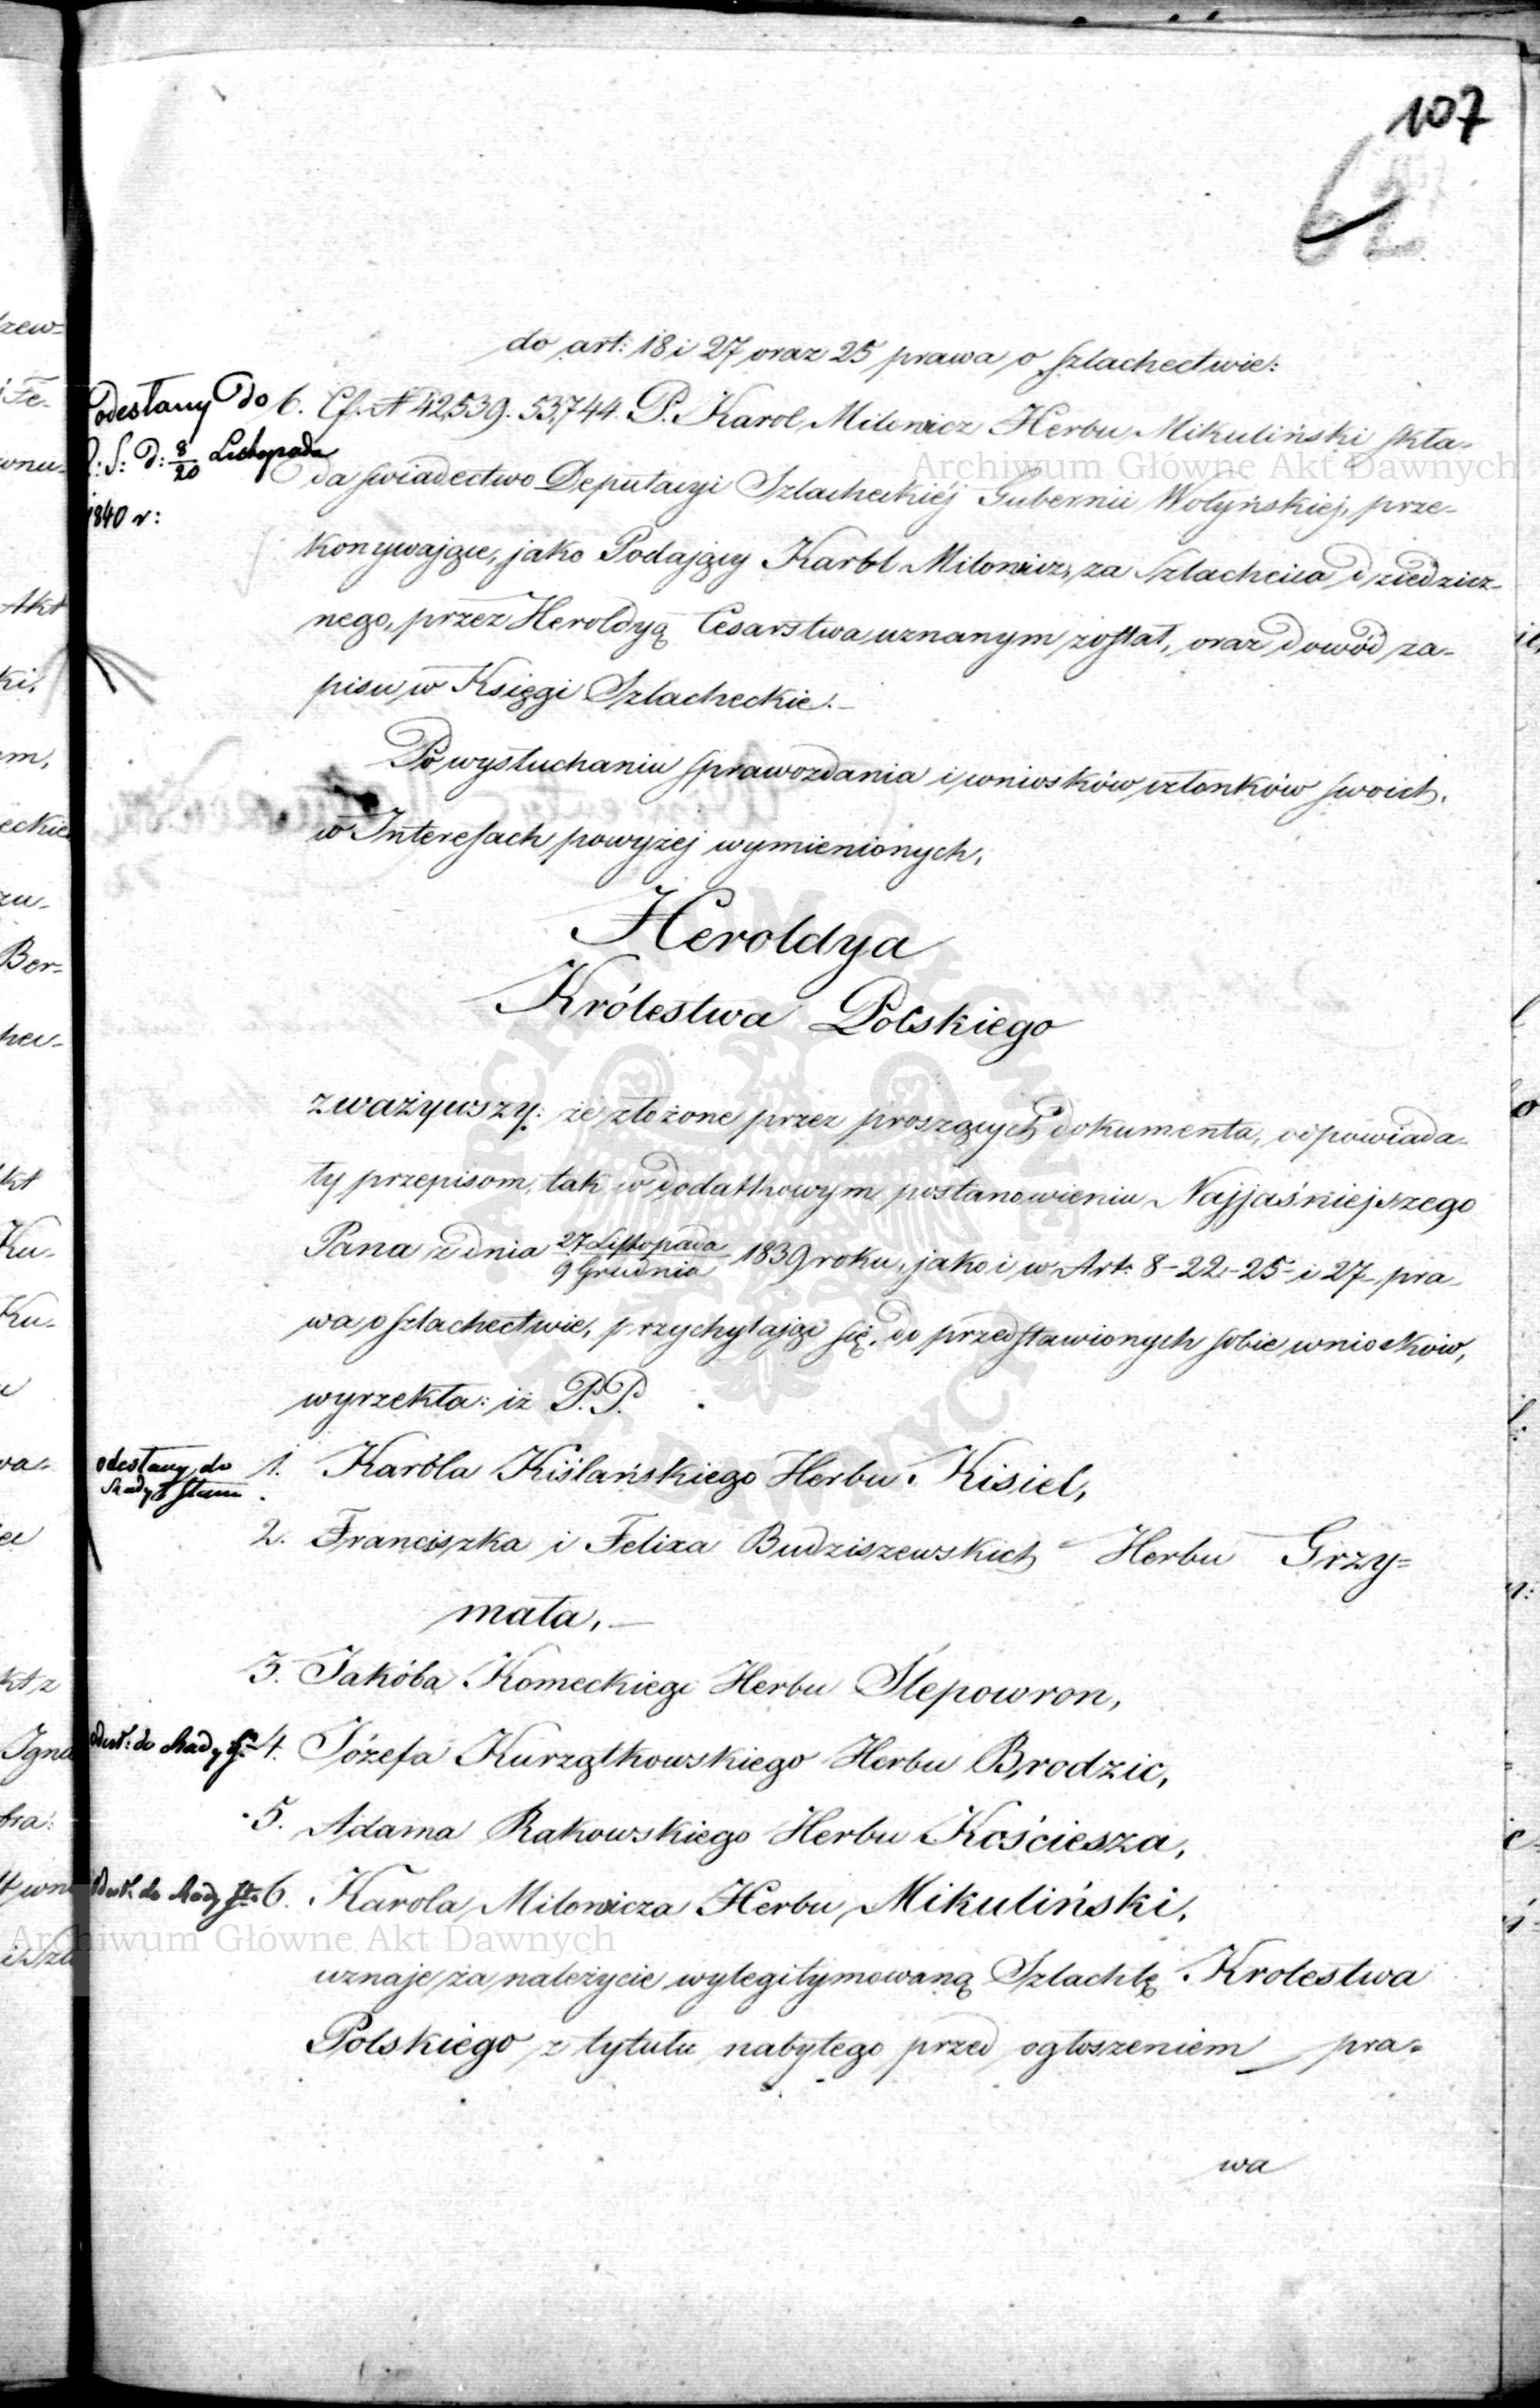 107
62
do art: 18 i 27 oraz 25 prawa o szlachectwie:
odesłany do
R: S: d: 8/20 Listopada
1840 r:
6. Cf. N 42,539. 53,744. P. Karol Milowicz Herbu Mikuliński skła-
da swiadectwo Deputacyi Szlacheckiéj Gubernii Wołyńskiej, prze-
konywające, jako Podający Karol Milowicz, za Szlachcica dziedzicz-
nego, przez Heroldyą Cesarstwa uznanym został, oraz dowód za-
pisu w Księgi Szlacheckie.
Po wysłuchaniu sprawozdania i wniosków członków swoich,
w Interesach powyżej wymienionych,
Heroldya
Królestwa Polskiego
zważywszy: że złożone przez proszących dokumenta, odpowiada-
ły przepisom, tak w dodatkowym postanowieniu Najjaśniejszego
Pana z dnia 27 Listopada/9 Grudnia 1839 roku, jako i w Art: 8-22-25- i 27- pra-
wa o szlachectwie, przychylając się, do przedstawionych sobie wniosków,
wyrzekła: iż P.P.
odesłany do
Rady Stanu
1. Karóla Kiślańskiego Herbu Kisiel,
2. Franciszka i Felixa Budziszewskich Herbu Grzy=
mała,
3. Jakóba Komeckiego Herbu Ślepowron,
odesł: do Rady St.
4. Józefa Kurzątkowskiego Herbu Brodzic,
5. Adama Rakowskiego Herbu Kościesza,
odesł. do Rady St.
6. Karola Milowicza Herbu Mikuliński,
uznaje za należycie wylegitymowaną Szlachtę Krolestwa
Polskiego z tytułu nabytego przed ogłoszeniem pra-
wa
Archiwum Główne Akt Dawnych
Archiwum Główne Akt Dawnych
ARCHIWUM GŁÓWNE AKT DAWNYCH